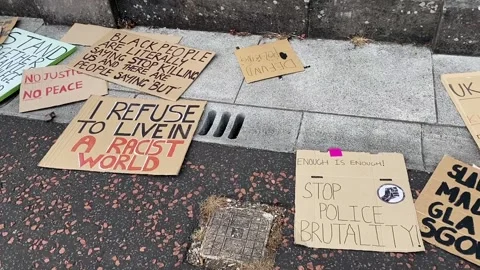 STAND
NO JUSTICE
NO PEACE
BLACK PEOPLE
ARE LITERALLY
SAYING STOP KILLING
US AND THERE ARE
PEOPLE SAYING 'BUT'
I REFUSE
TO LIVE IN
A RACIST
WORLD
ENOUGH IS ENOUGH!
STOP
POLICE
BRUTALITY!
UK
MAD
GLA
SGO